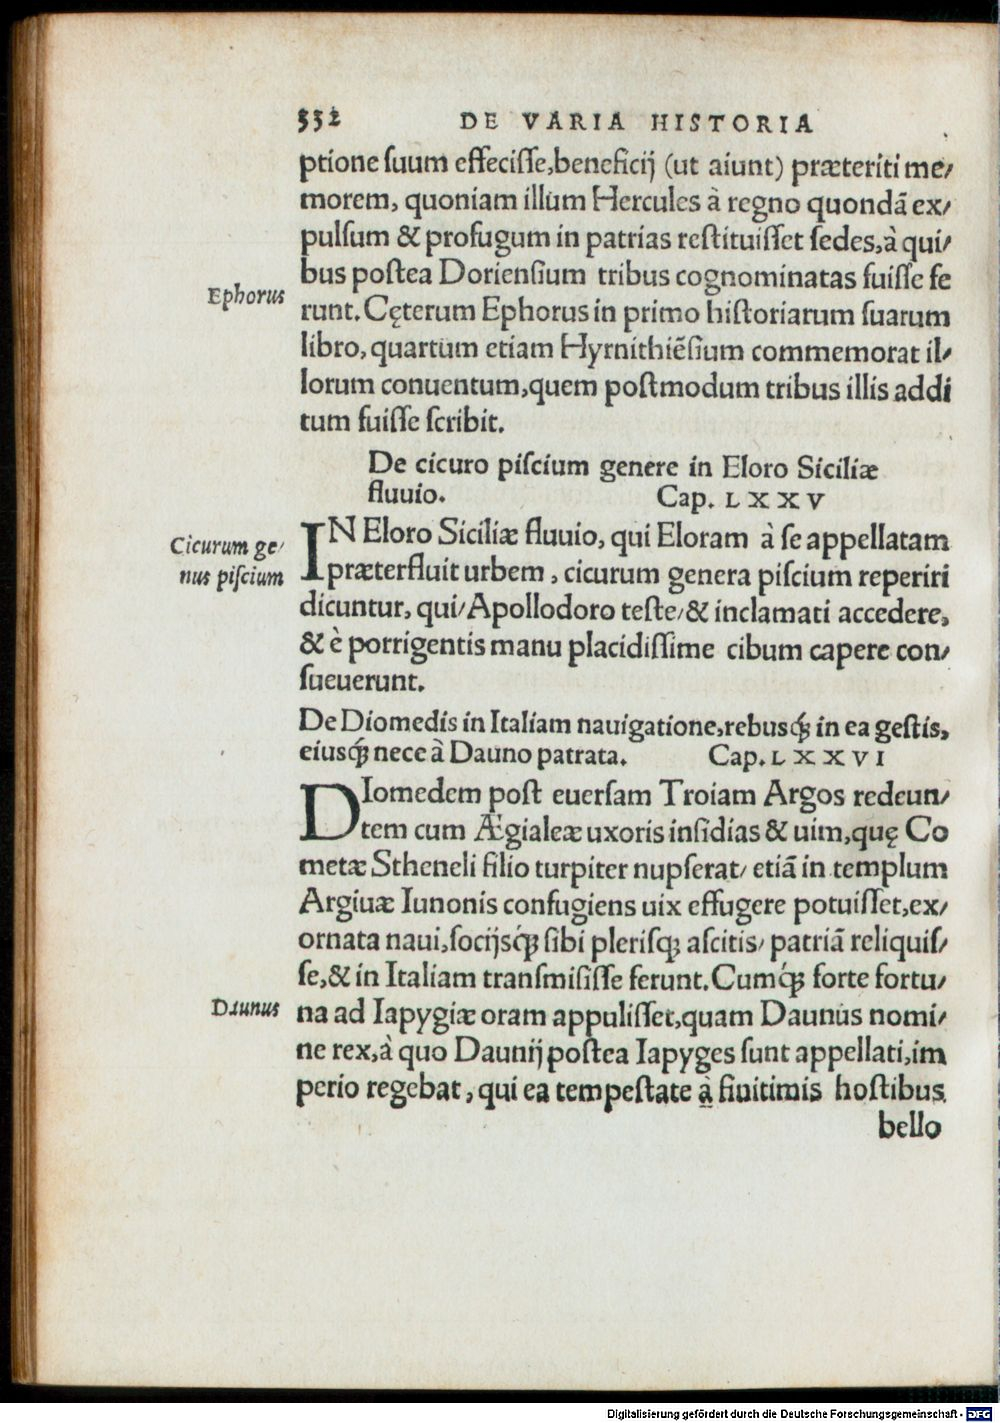 332 DE VARIA HISTORIA
ptione ſuum effeciſſe,beneficij (ut aiunt) præteriti me/
morem, quoniam illum Hercules à regno quondã ex/
pulſum & profugum in patrias reſtituiſſet ſedes,à qui/
bus poſtea Dorienſium tribus cognominatas fuiſſe fe
Ephorus
runt. Cęterum Ephorus in primo hiſtoriarum ſuarum
libro, quartum etiam Hyrnithiẽſium commemorat il/
lorum conuentum,quem poſtmodum tribus illis addi
tum fuiſſe ſcribit.
De cicuro piſcium genere in Eloro Siciliæ
fluuio. Cap. LXXV
Cicurum ge/
nus piſcium
IN Eloro Siciliæ fluuio, qui Eloram à ſe appellatam
præterfluit urbem, cicurum genera piſcium reperiri
dicuntur, qui/ Apollodoro teſte/ & inclamati accedere,
& è porrigentis manu placidiſſime cibum capere con/
ſueuerunt.
De Diomedis in Italiam nauigatione,rebusq́ꝫ in ea geſtis,
eiusq́ꝫ nece à Dauno patrata. Cap. LXXVI
DIomedem poſt euerſam Troiam Argos redeun/
tem cum Ægialeæ uxoris inſidias & uim,quę Co
metæ Stheneli filio turpiter nupſerat/ etiã in templum
Argiuæ Iunonis confugiens uix effugere potuiſſet,ex/
ornata naui,ſocijsq́ꝫ ſibi pleriſqꝫ aſcitis/ patriã reliquiſ/
ſe,& in Italiam tranſmiſiſſe ferunt. Cumq́ꝫ forte fortu/
Daunus
na ad Iapygiæ oram appuliſſet,quam Daunus nomi/
ne rex,à quo Daunij poſtea Iapyges ſunt appellati,im
perio regebat, qui ea tempeſtate à finitimis hoſtibus
bello
Digitalisierung gefördert durch die Deutsche Forschungsgemeinschaft - DFG